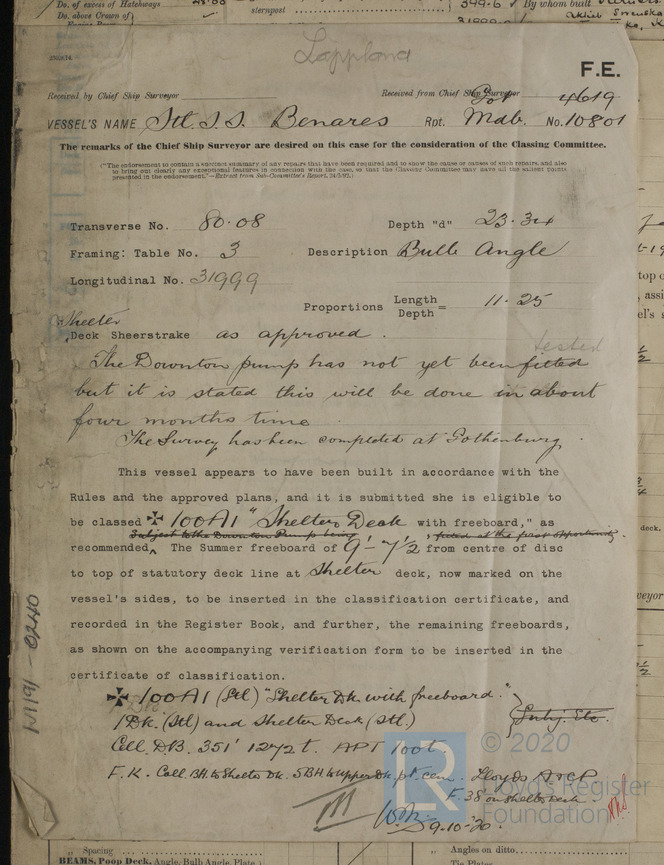 Do. of excess of Hatchways
sternpost
399.6
By whom built
Do. above Crown of
31999.0
Lappland
F.E.
Received by Chief Ship Surveyor
Received from Chief Ship Surveyor
Got 4619
VESSEL'S NAME Stl. S.S. Benares Rpt. Mdb. No. 10801
The remarks of the Chief Ship Surveyor are desired on this case for the consideration of the Classing Committee.
("The endorsement to contain a succinct summary of any repairs that have been required and to show the cause or causes of such repairs, and also
to bring out clearly any exceptional features in connection with the case, so that the Classing Committee may have all the salient points
presented in the endorsement."—Extract from Sub-Committee's Report,
Transverse No. 80.08 Depth "d" 23.34
Framing: Table No. 3 Description Bulb Angle
Longitudinal No. 31999
Proportions Length / Depth = 11.25
Shelter
Deck Sheerstrake as approved.
tested
The Downton pump has not yet been fitted
but it is stated this will be done in about
four months time.
The Survey has been completed at Gothenburg.
This vessel appears to have been built in accordance with the
Rules and the approved plans, and it is submitted she is eligible to
be classed ✠ 100A1 "Shelter Deck with freeboard," as
Subject to the Downton Pump being fitted at the first opportunity.
recommended, The Summer freeboard of 9'-7½ from centre of disc
to top of statutory deck line at Shelter deck, now marked on the
vessel's sides, to be inserted in the classification certificate, and
recorded in the Register Book, and further, the remaining freeboards,
as shown on the accompanying verification form to be inserted in the
certificate of classification.
✠ 100A1 (Stl) "Shelter Dk. with freeboard."
Subj. Etc.
1Dk. (Stl) and Shelter Deck (Stl.)
Cell. D.B. 351' 1272t. APT 100t
F.K. Cell. BH to Shelter Dk. 5BH to Upper Dk. pt. cem. Lloyds A&CP
F. 38' on shelter deck.
9.10.20
LR
© 2020
Lloyd's Register
Foundation
W1191-0240
deck.
Spacing
BEAMS, Poop Deck, Angle, Bulb Angle, Plate
Angles on ditto
Tie Plates